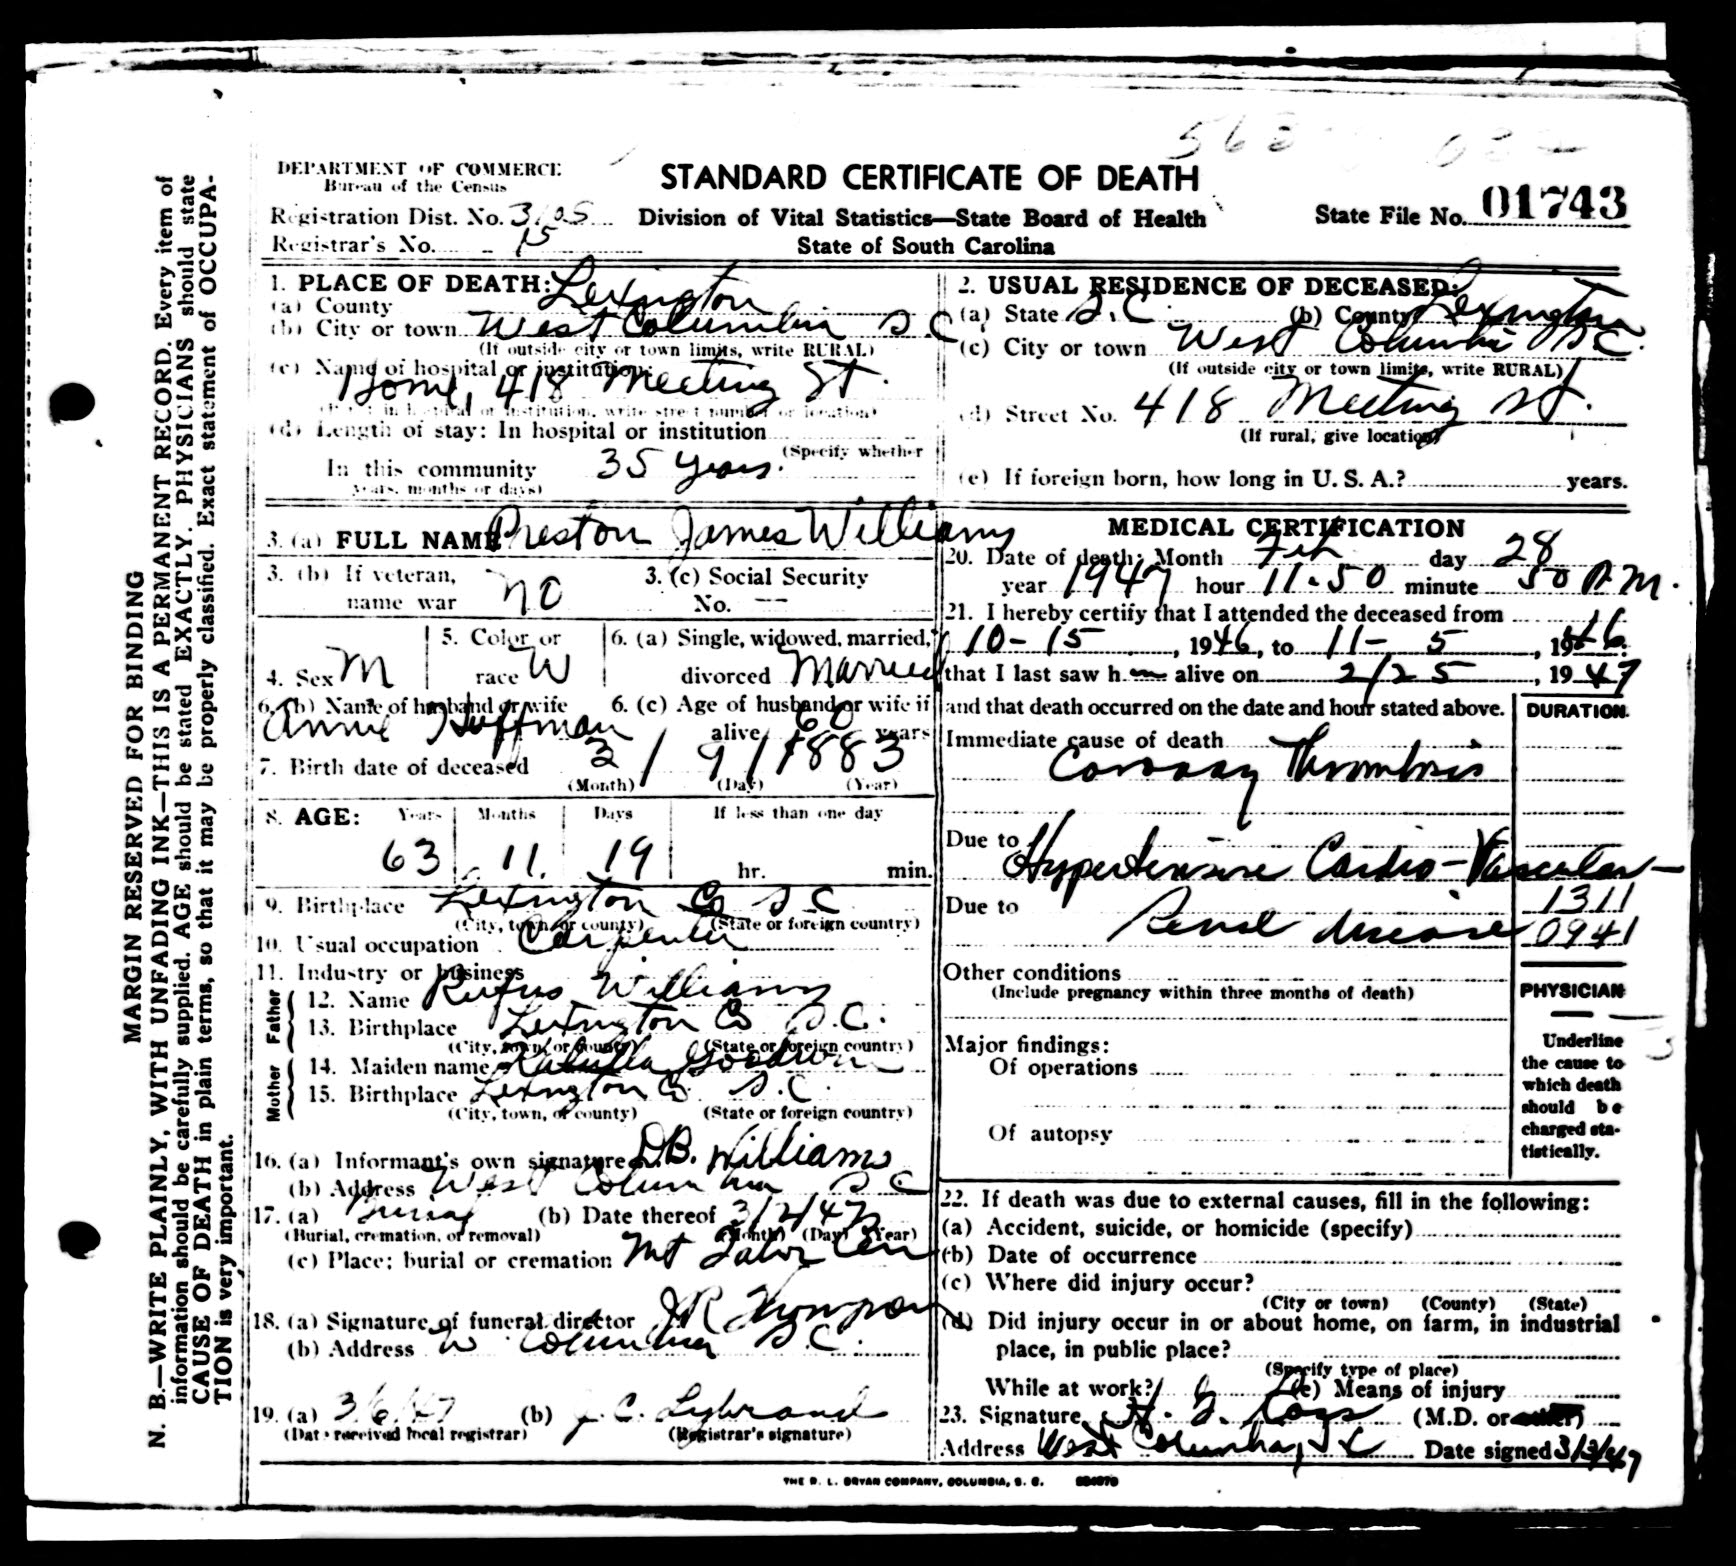 DEPARTMENT OF COMMERCE
Bureau of the Census
STANDARD CERTIFICATE OF DEATH
Registration Dist. No. 3105
Division of Vital Statistics—State Board of Health
State File No. 01743
Registrar's No. 15
State of South Carolina
1. PLACE OF DEATH:
(a) County Lexington
(b) City or town West Columbia S C
(If outside city or town limits, write RURAL)
(c) Name of hospital or institution:
Home, 418 Meeting St.
(If not in hospital or institution, write street number or location)
(d) Length of stay: In hospital or institution
(Specify whether
In this community 35 years.
years, months or days)
2. USUAL RESIDENCE OF DECEASED:
(a) State S.C (b) County Lexington
(c) City or town West Columbia S C.
(If outside city or town limits, write RURAL)
(d) Street No. 418 Meeting St.
(If rural, give location)
(e) If foreign born, how long in U. S. A.? years.
3. (a) FULL NAME Preston James Williams
3. (b) If veteran, name war no
3. (c) Social Security No. --
4. Sex M
5. Color or race W
6. (a) Single, widowed, married, divorced Married
6. (b) Name of husband or wife Annie Huffman
6. (c) Age of husband or wife if alive 60 years
7. Birth date of deceased 3/9/1883
(Month) (Day) (Year)
8. AGE: Years Months Days If less than one day
63 11 19 hr. min.
9. Birthplace Lexington Co S C
(City, town, or county) (State or foreign country)
10. Usual occupation Carpenter
11. Industry or business
Father
12. Name Rufus Williams
13. Birthplace Lexington Co S.C.
(City, town, or county) (State or foreign country)
Mother
14. Maiden name Goodwin
15. Birthplace Lexington Co S.C.
(City, town, or county) (State or foreign country)
16. (a) Informant's own signature D.B. Williams
(b) Address West Columbia S C
17. (a) Burial (b) Date thereof 3/2/47
(Burial, cremation, or removal) (Month) (Day) (Year)
(c) Place: burial or cremation Mt Tabor Cem
18. (a) Signature of funeral director J R Thompson
(b) Address W Columbia S.C.
19. (a) 3/6/47 (b) J. C. Lybrand
(Date received local registrar) (Registrar's signature)
MEDICAL CERTIFICATION
20. Date of death: Month Feb day 28
year 1947 hour 11-50 minute 50 P.M.
21. I hereby certify that I attended the deceased from
10-15, 1946, to 11-5, 1946
that I last saw him alive on 2/25, 1947
and that death occurred on the date and hour stated above.
DURATION
Immediate cause of death
Coronary Thrombosis
Due to Hypertensive Cardio-Vascular-
Due to Renal disease
1311
0941
Other conditions
(Include pregnancy within three months of death)
PHYSICIAN
Major findings:
Of operations
Of autopsy
Underline
the cause to
which death
should be
charged sta-
tistically.
22. If death was due to external causes, fill in the following:
(a) Accident, suicide, or homicide (specify)
(b) Date of occurrence
(c) Where did injury occur?
(City or town) (County) (State)
(d) Did injury occur in or about home, on farm, in industrial
place, in public place?
(Specify type of place)
While at work? (e) Means of injury
23. Signature (M.D. or other)
Address West Columbia, S C Date signed 3/3/47
THE R. L. BRYAN COMPANY, COLUMBIA, S. C.
MARGIN RESERVED FOR BINDING
N. B.—WRITE PLAINLY, WITH UNFADING INK—THIS IS A PERMANENT RECORD. Every item of
information should be carefully supplied. AGE should be stated EXACTLY. PHYSICIANS should state
CAUSE OF DEATH in plain terms, so that it may be properly classified. Exact statement of OCCUPA-
TION is very important.